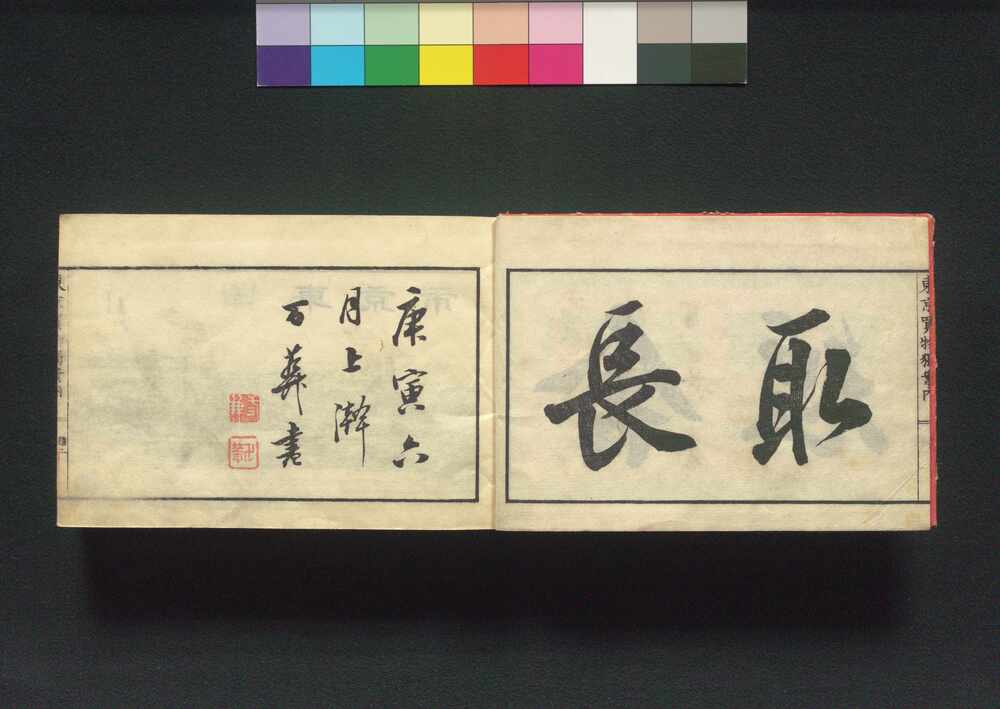 取長
庚寅六
月上澣
百葬書
東京買物獨案内